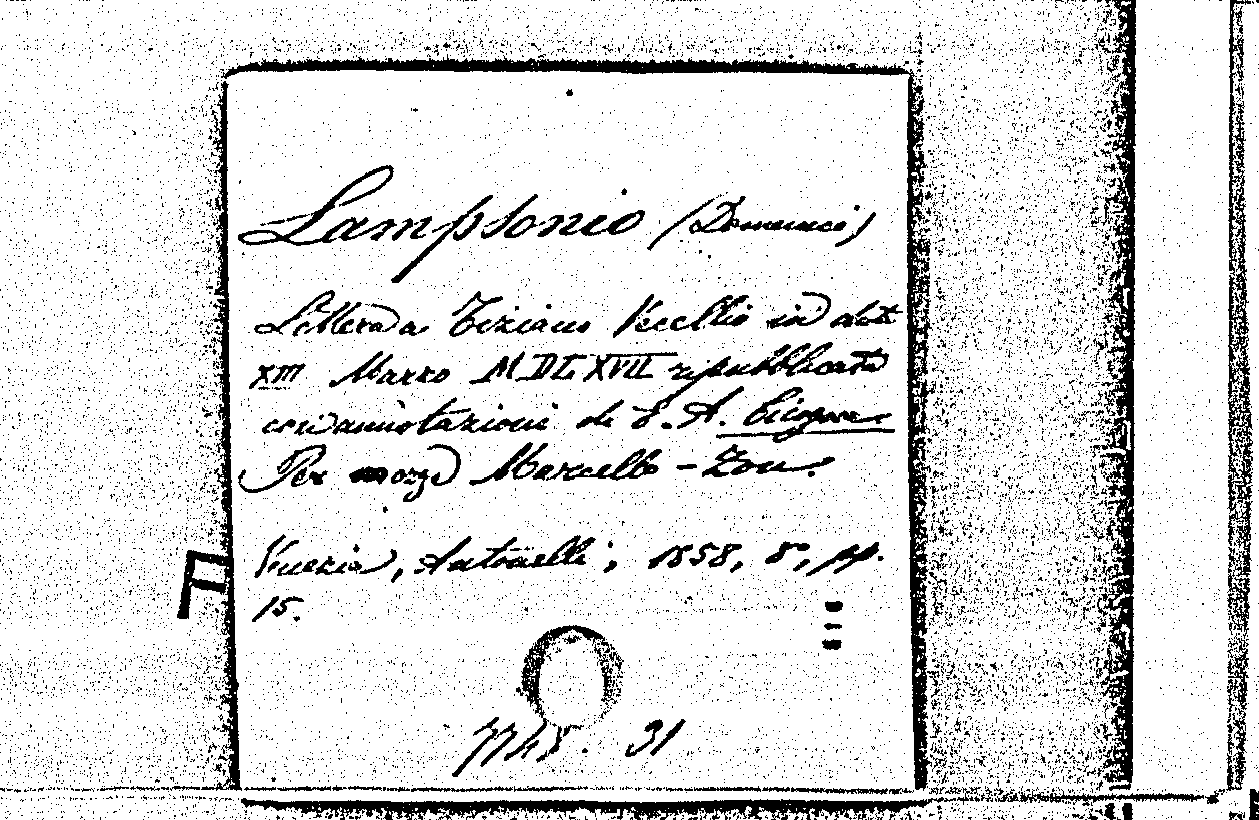 Lampsonio (Domenico)
Lettera a Tiziano Vecellio in data
XIII Marzo MDLXVII ripubblicata
con annotazioni di E. A. Cicogna.
Per nozze Marcello - Zon.
Venezia, Antonelli, 1858, 8°, pp.
15.
7748. 31